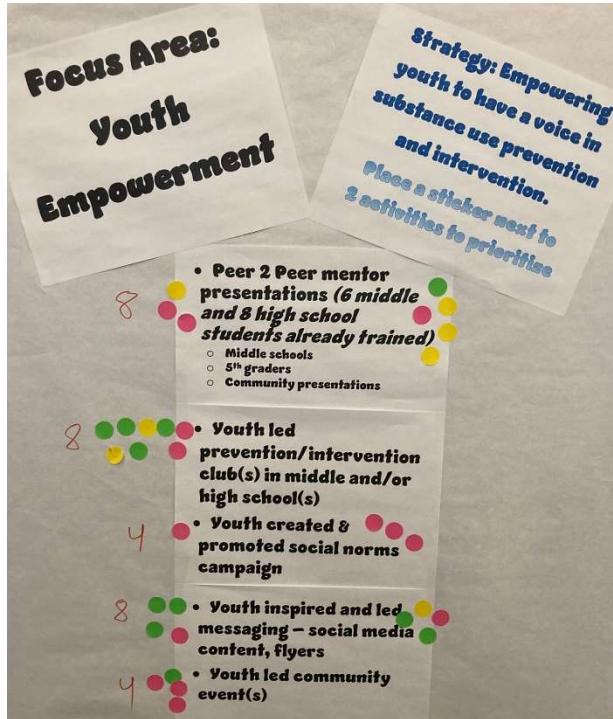 Focus Area:
Youth
Empowerment
Strategy: Empowering
youth to have a voice in
substance use prevention
and intervention.
Place a sticker next to
2 activities to prioritize
8
• Peer 2 Peer mentor
presentations (6 middle
and 8 high school
students already trained)
○ Middle schools
○ 5th graders
○ Community presentations
8
• Youth led
prevention/intervention
club(s) in middle and/or
high school(s)
4
• Youth created &
promoted social norms
campaign
8
• Youth inspired and led
messaging – social media
content, flyers
4
• Youth led community
event(s)